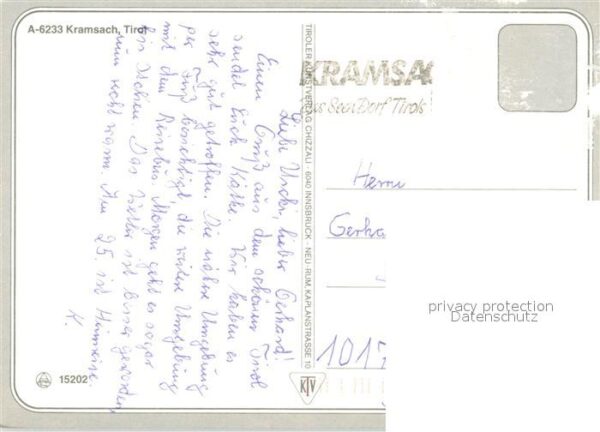 A-6233 Kramsach, Tirol
Liebe Uschi, lieber Gerhard!
Einen Gruß aus dem schönen Tirol
sendet Euch Käthe. Wir haben es
sehr gut getroffen. Die nähere Umgebung
per Fuß besichtigt, die weitere Umgebung
mit dem Reisebus. Morgen geht es sogar
Das Wetter ist besser geworden,
Am 25. ist Heimreise.
K.
15202
TIROLER KUNSTVERLAG CHIZZALI · 6040 INNSBRUCK - NEU-RUM, KAPLANSTRASSE 10
KTV
KRAMSAC
Das Seen Dorf Tirols
Herrn
Gerha
1017
privacy protection
Datenschutz